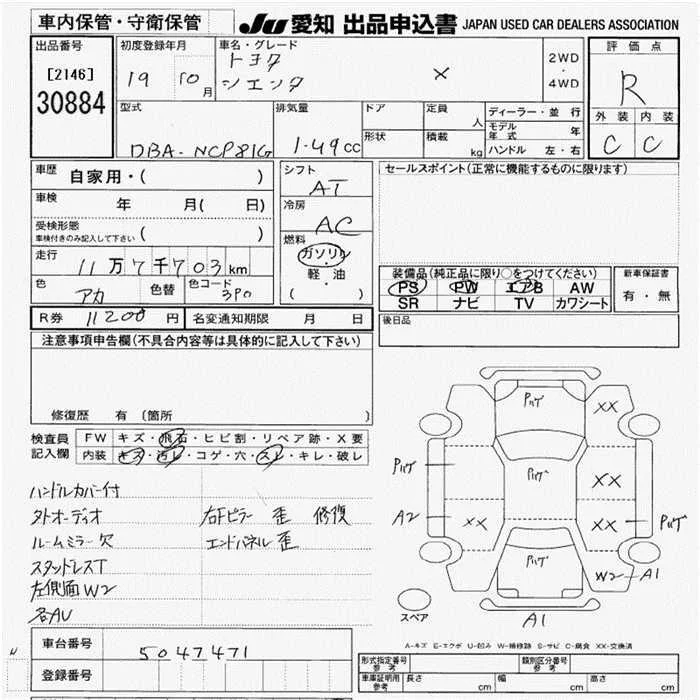 車内保管・守衛保管
JU 愛知 出品申込書 JAPAN USED CAR DEALERS ASSOCIATION
出品番号
[2146]
30884
初度登録年月
19 10月
車名・グレード
トヨタ
シエンタ X
2WD
・
4WD
評価点
R
外装 内装
C C
型式
DBA-NCP81G
排気量
1.49cc
ドア
形状
定員 人
積載 kg
ディーラー・並行
モデル年式 年
ハンドル 左・右
車歴 自家用・( )
車検 年 月( 日)
受検形態
車検付きのみ記入して下さい ( )
走行 11万7千703km
色 アカ 色替 色コード 3P0
シフト
AT
冷房
AC
燃料
ガソリン
・
軽油
( )
セールスポイント(正常に機能するものに限ります)
装備品(純正品に限り○をつけてください)
PS PW エアB AW
SR ナビ TV カワシート
新車保証書
有・無
R券 11200円 名変通知期限 月 日
後日品
注意事項申告欄(不具合内容等は具体的に記入して下さい)
修復歴 有 〔箇所 〕
検査員記入欄
FW キズ・飛石・ヒビ割・リペア跡・X要
内装 キズ・汚レ・コゲ・穴・スレ・キレ・破レ
ハンドルカバー付
外オーディオ 右Fピラー 歪 修復
ルームミラー欠 エンドパネル歪
スタッドレスT
左側面W2
各AU
パリゲ
XX
パリゲ
パリゲ
XX
A2
XX
XX
パリゲ
パリゲ
W2 A1
スペア
A1
A-キズ E-エクボ U-凹み W-補修跡 S-サビ C-腐食 XX-交換済
車台番号 5047471
登録番号
型式指定番号 参考
類別区分番号 参考
車庫証明用 参考 長さ cm 巾 cm 高さ cm